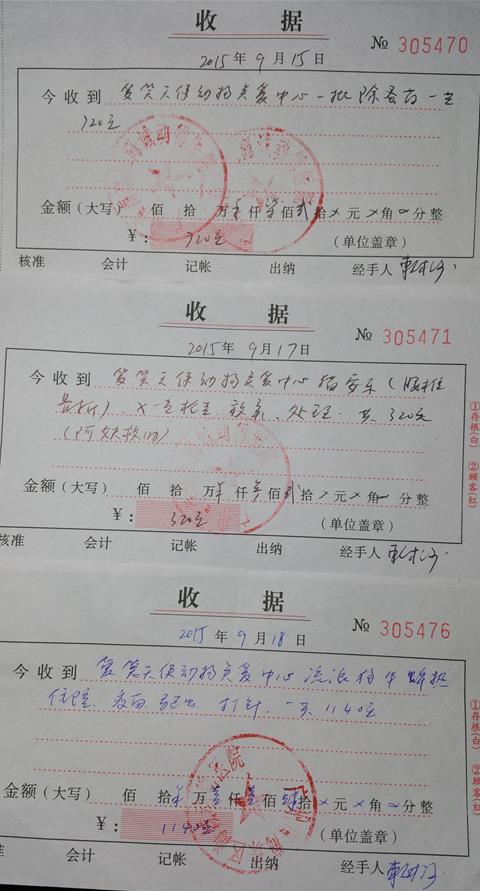 收 据
№ 305470
2015年9月15日
今收到 爱笑天使动物关爱中心一批除蚤药一共
720元
金额（大写） 佰 拾 万 仟柒佰贰拾 元 角 分整
¥： 720元 （单位盖章）
核准 会计 记帐 出纳 经手人
收 据
№ 305471
2015年9月17日
今收到 爱笑天使动物关爱中心猫安乐（腰椎
骨折）、X 共 320元
金额（大写） 佰 拾 万 仟叁佰贰拾 元 角 分整
¥： 320元 （单位盖章）
核准 会计 记帐 出纳 经手人
①存根(白) ②顾客(红)
收 据
№ 305476
2015年9月18日
今收到 爱笑天使动物关爱中心流浪狗 热
住院 打针 一共1140元
金额（大写） 佰 拾 万壹仟壹佰肆拾 元 角 分整
¥： 1140元 （单位盖章）
核准 会计 记帐 出纳 经手人
①存根(白) ②顾客(红)